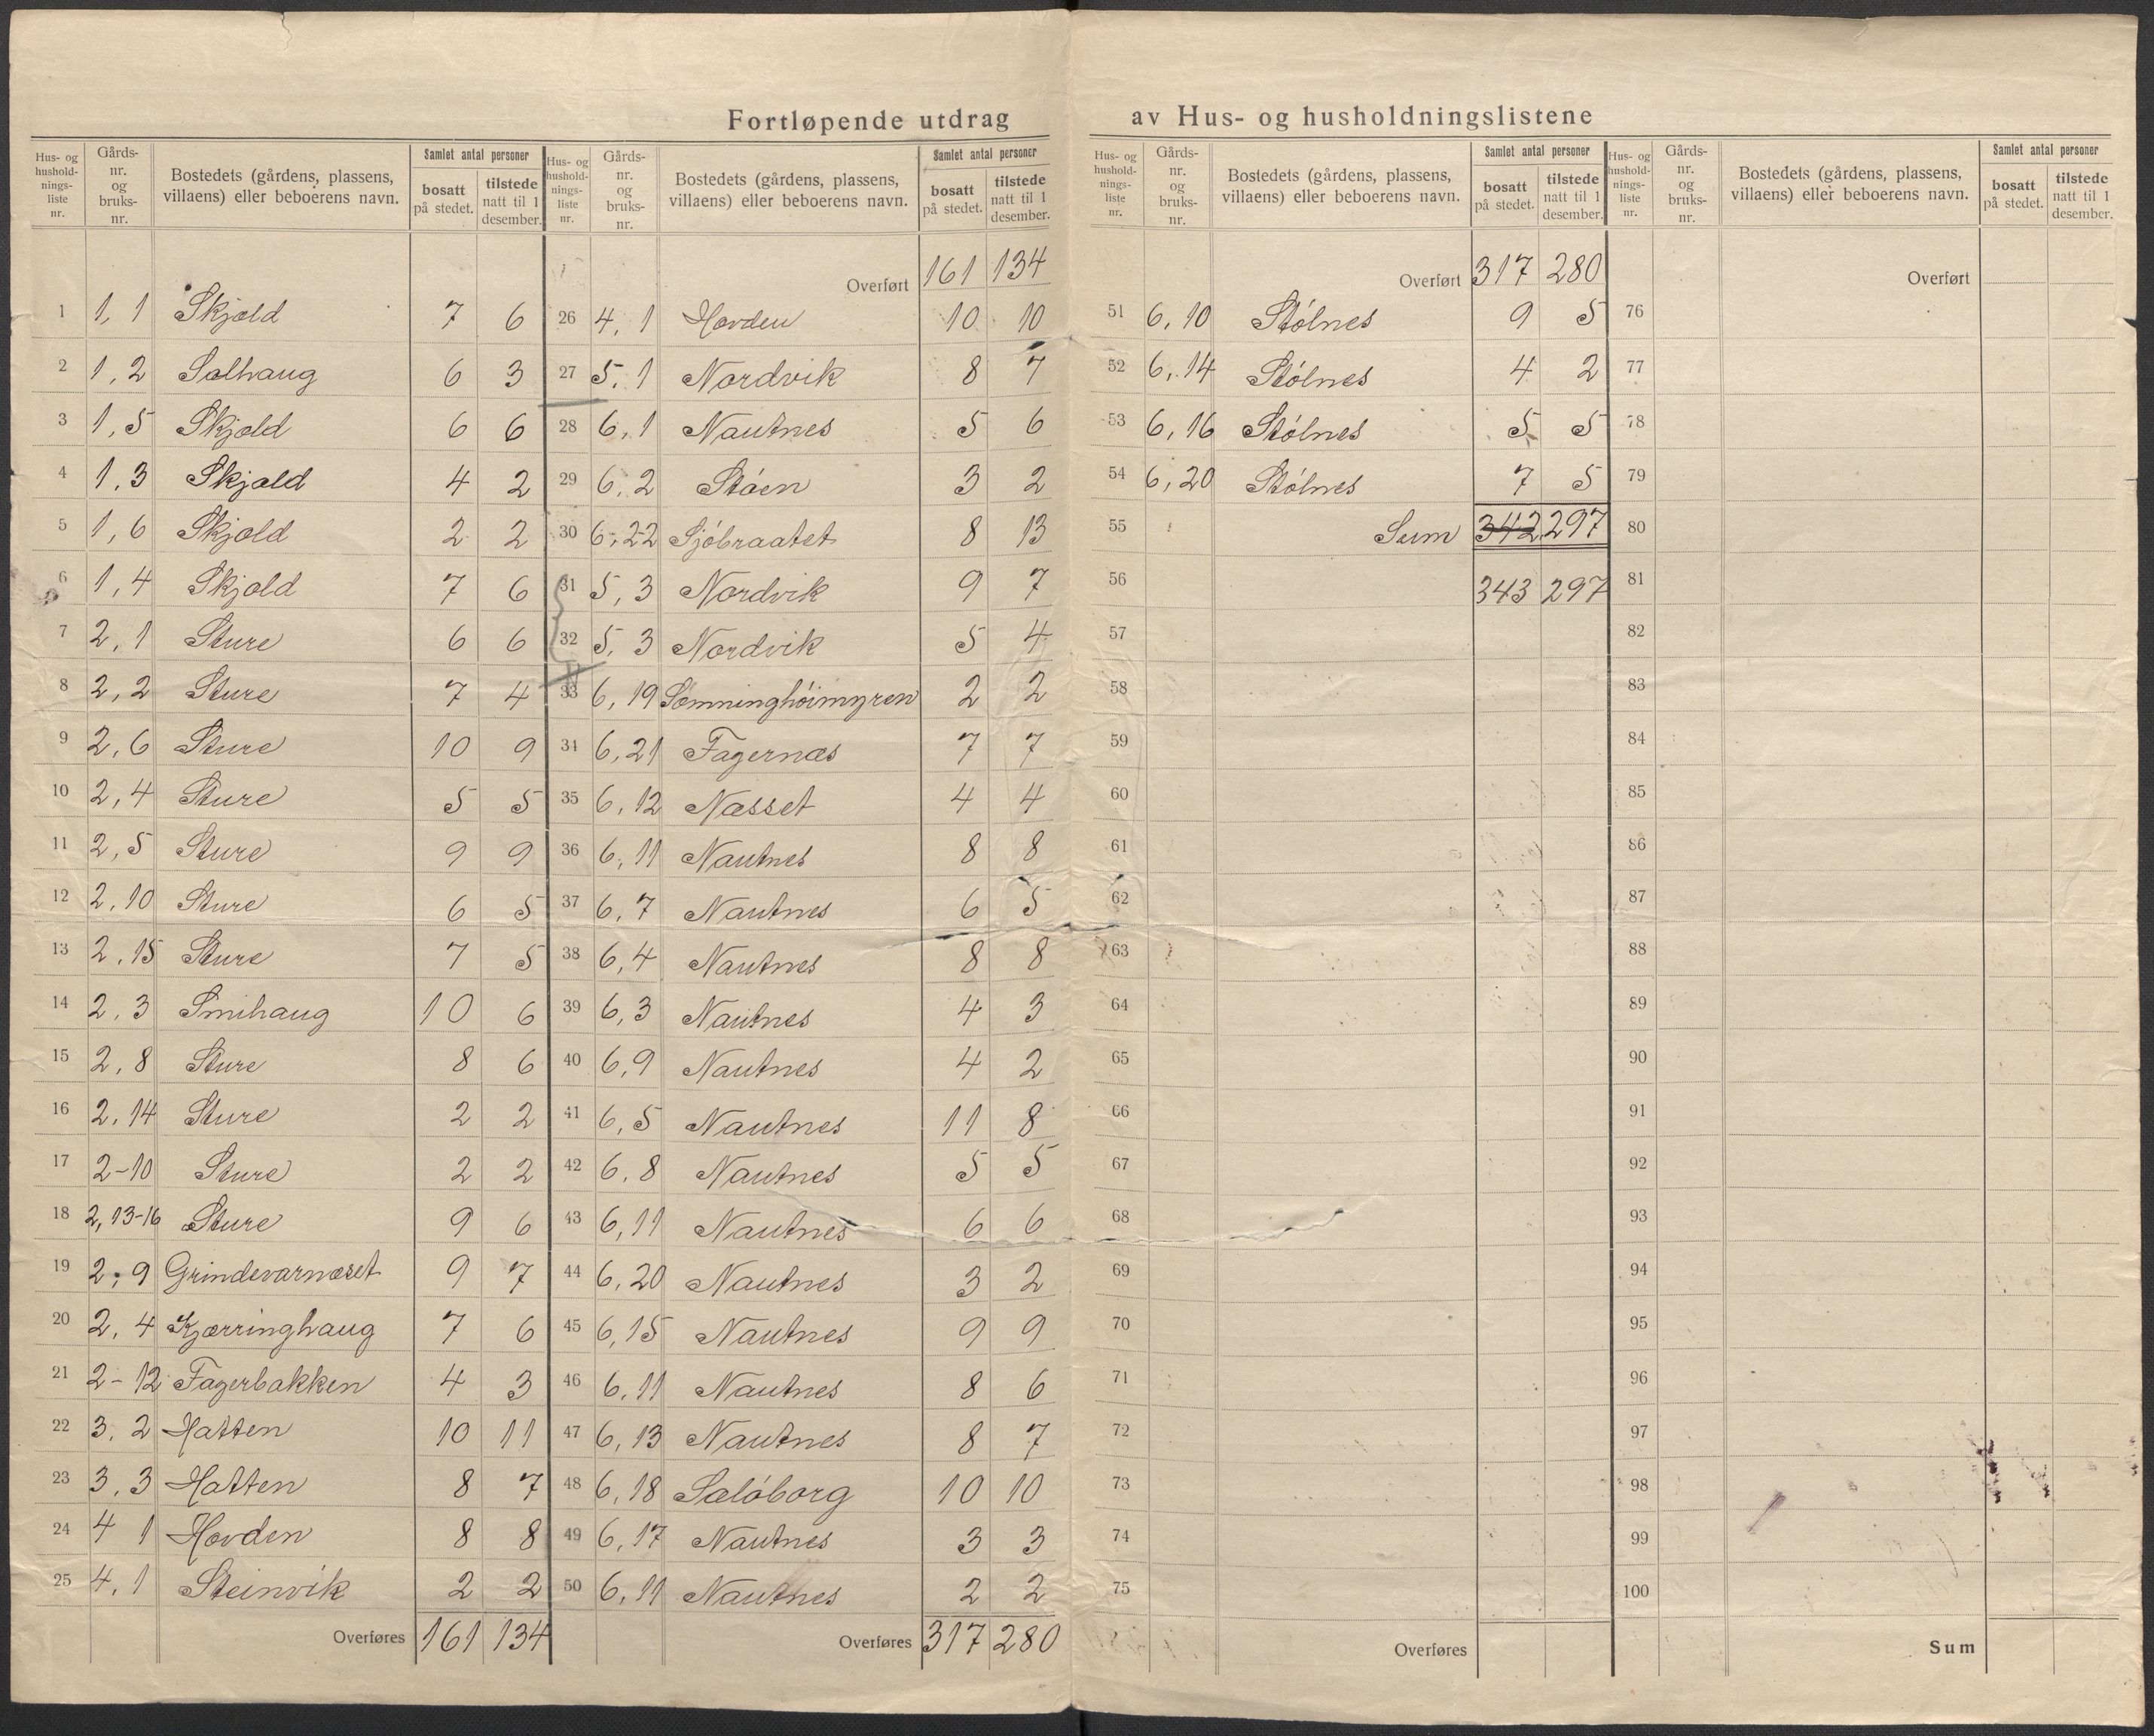 Fortløpende utdrag av Hus- og husholdningslistene
Hus- og hushold-nings-liste nr. Gårds-nr. og bruks-nr. Bostedets (gårdens, plassens, villaens) eller beboerens navn. Samlet antal personer bosatt på stedet. tilstede natt til 1 desember.
1 1, 1 Skjold 7 6
2 1, 2 Solhaug 6 3
3 1, 5 Skjold 6 6
4 1, 3 Skjold 4 2
5 1, 6 Skjold 2 2
6 1, 4 Skjold 7 6
7 2, 1 Sture 6 6
8 2, 2 Sture 7 4
9 2, 6 Sture 10 9
10 2, 4 Sture 5 5
11 2, 5 Sture 9 9
12 2, 10 Sture 6 5
13 2, 15 Sture 7 5
14 2, 3 Smihaug 10 6
15 2, 8 Sture 8 6
16 2, 14 Sture 2 2
17 2-10 Sture 2 2
18 2, 13-16 Sture 9 6
19 2, 9 Grindevarnæset 9 7
20 2, 4 Kjærringhaug 7 6
21 2-12 Fagerbakken 4 3
22 3, 2 Hatten 10 11
23 3, 3 Hatten 8 7
24 4 1 Hovden 8 8
25 4, 1 Steinvik 2 2
Overføres 161 134
Hus- og hushold-nings-liste nr. Gårds-nr. og bruks-nr. Bostedets (gårdens, plassens, villaens) eller beboerens navn. Samlet antal personer bosatt på stedet. tilstede natt til 1 desember.
Overført 161 134
26 4, 1 Hovden 10 10
27 5, 1 Nordvik 8 7
28 6, 1 Nautnes 5 6
29 6, 2 Støen 3 2
30 6, 22 Sjöbraatet 8 13
31 5, 3 Nordvik 9 7
32 5, 3 Nordvik 5 4
33 6, 19 Sømninghóimyren 2 2
34 6, 21 Fagernæs 7 7
35 6, 12 Næsset 4 4
36 6, 11 Nautnes 8 8
37 6, 7 Nautnes 6 5
38 6, 4 Nautnes 8 8
39 6, 3 Nautnes 4 3
40 6, 9 Nautnes 4 2
41 6, 5 Nautnes 11 8
42 6, 8 Nautnes 5 5
43 6, 11 Nautnes 6 6
44 6, 20 Nautnes 3 2
45 6, 15 Nautnes 9 9
46 6, 11 Nautnes 8 6
47 6, 13 Nautnes 8 7
48 6, 18 Sælóborg 10 10
49 6, 17 Nautnes 3 3
50 6, 11 Nautnes 2 2
Overføres 317 280
Hus- og hushold-nings-liste nr. Gårds-nr. og bruks-nr. Bostedets (gårdens, plassens, villaens) eller beboerens navn. Samlet antal personer bosatt på stedet. tilstede natt til 1 desember.
Overført 317 280
51 6, 10 Stólnes 9 5
52 6, 14 Stólnes 4 2
53 6, 16 Stólnes 5 5
54 6, 20 Stólnes 7 5
55 Sum 342 297
56 343 297
57
58
59
60
61
62
63
64
65
66
67
68
69
70
71
72
73
74
75
Overføres
Hus- og hushold-nings-liste nr. Gårds-nr. og bruks-nr. Bostedets (gårdens, plassens, villaens) eller beboerens navn. Samlet antal personer bosatt på stedet. tilstede natt til 1 desember.
Overført
76
77
78
79
80
81
82
83
84
85
86
87
88
89
90
91
92
93
94
95
96
97
98
99
100
Sum